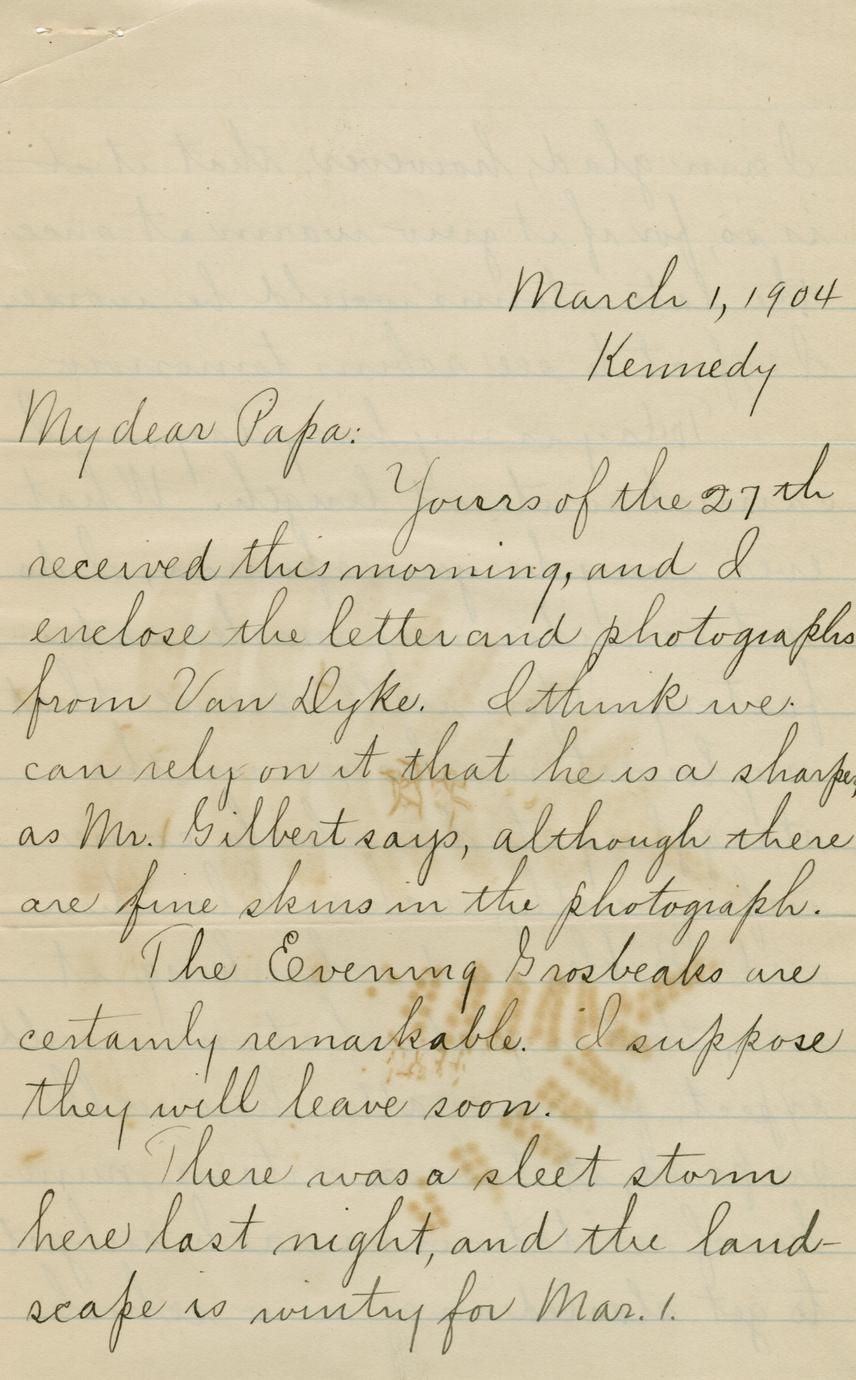 March 1, 1904
Kennedy
My dear Papa:
Yours of the 27th
received this morning, and I
enclose the letter and photographs
from Van Dyke. I think we
can rely on it that he is a sharper,
as Mr. Gilbert says, although there
are fine skins in the photograph.
The Eevening Grosbeaks are
certainly remarkable. I suppose
they will leave soon.
There was a sleet storm
here last night, and the land-
scape is wintry for Mar. 1.